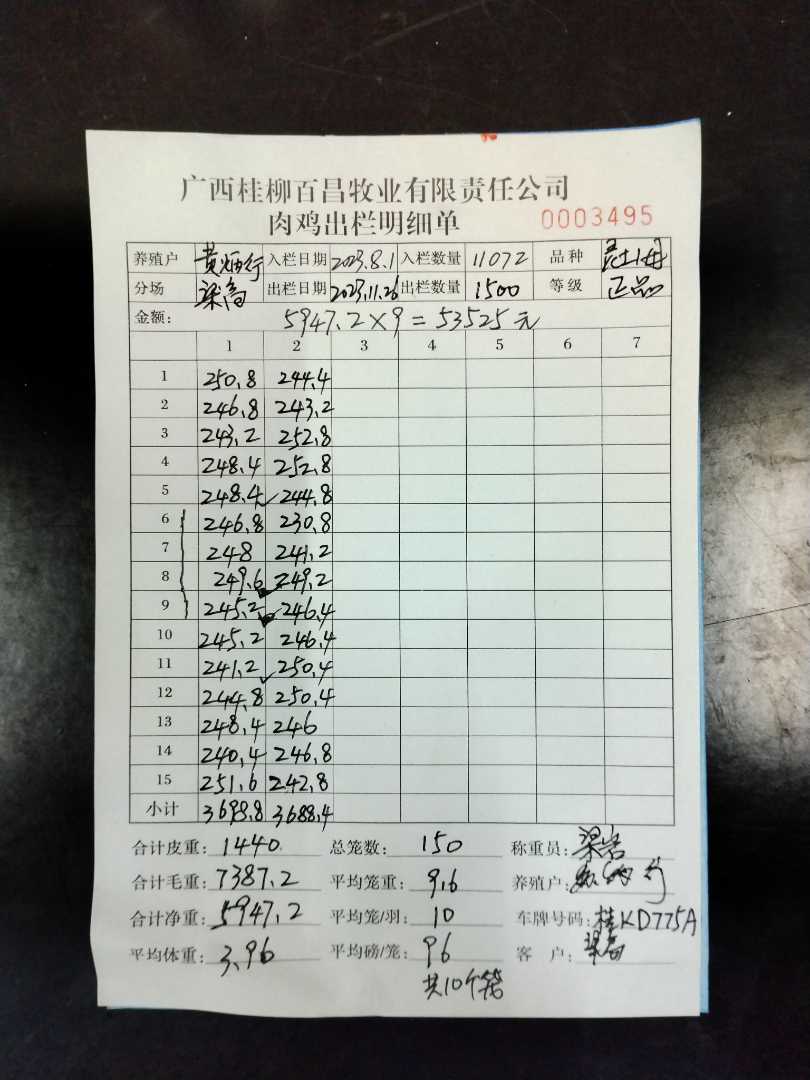 广西桂柳百昌牧业有限责任公司
肉鸡出栏明细单 0003495
养殖户 黄炳行 入栏日期 2023.8.1 入栏数量 11072 品种
分场 梁高 出栏日期 2023.11.26 出栏数量 1500 等级 正品
金额: 5947.2×9=53525元
1 2 3 4 5 6 7
1 250.8 244.4
2 246.8 243.2
3 243.2 252.8
4 248.4 252.8
5 248.4 244.8
6 246.8 230.8
7 248 241.2
8 249.6 249.2
9 245.2 246.4
10 245.2 246.4
11 241.2 250.4
12 244.8 250.4
13 248.4 246
14 240.4 246.8
15 251.6 242.8
小计 3698.8 3688.4
合计皮重: 1440 总笼数: 150 称重员:
合计毛重: 7387.2 平均笼重: 9.6 养殖户:
合计净重: 5947.2 平均笼/羽: 10 车牌号码: 桂KD775A
平均体重: 3.96 平均磅/笼: 96 客户:
共10个笼